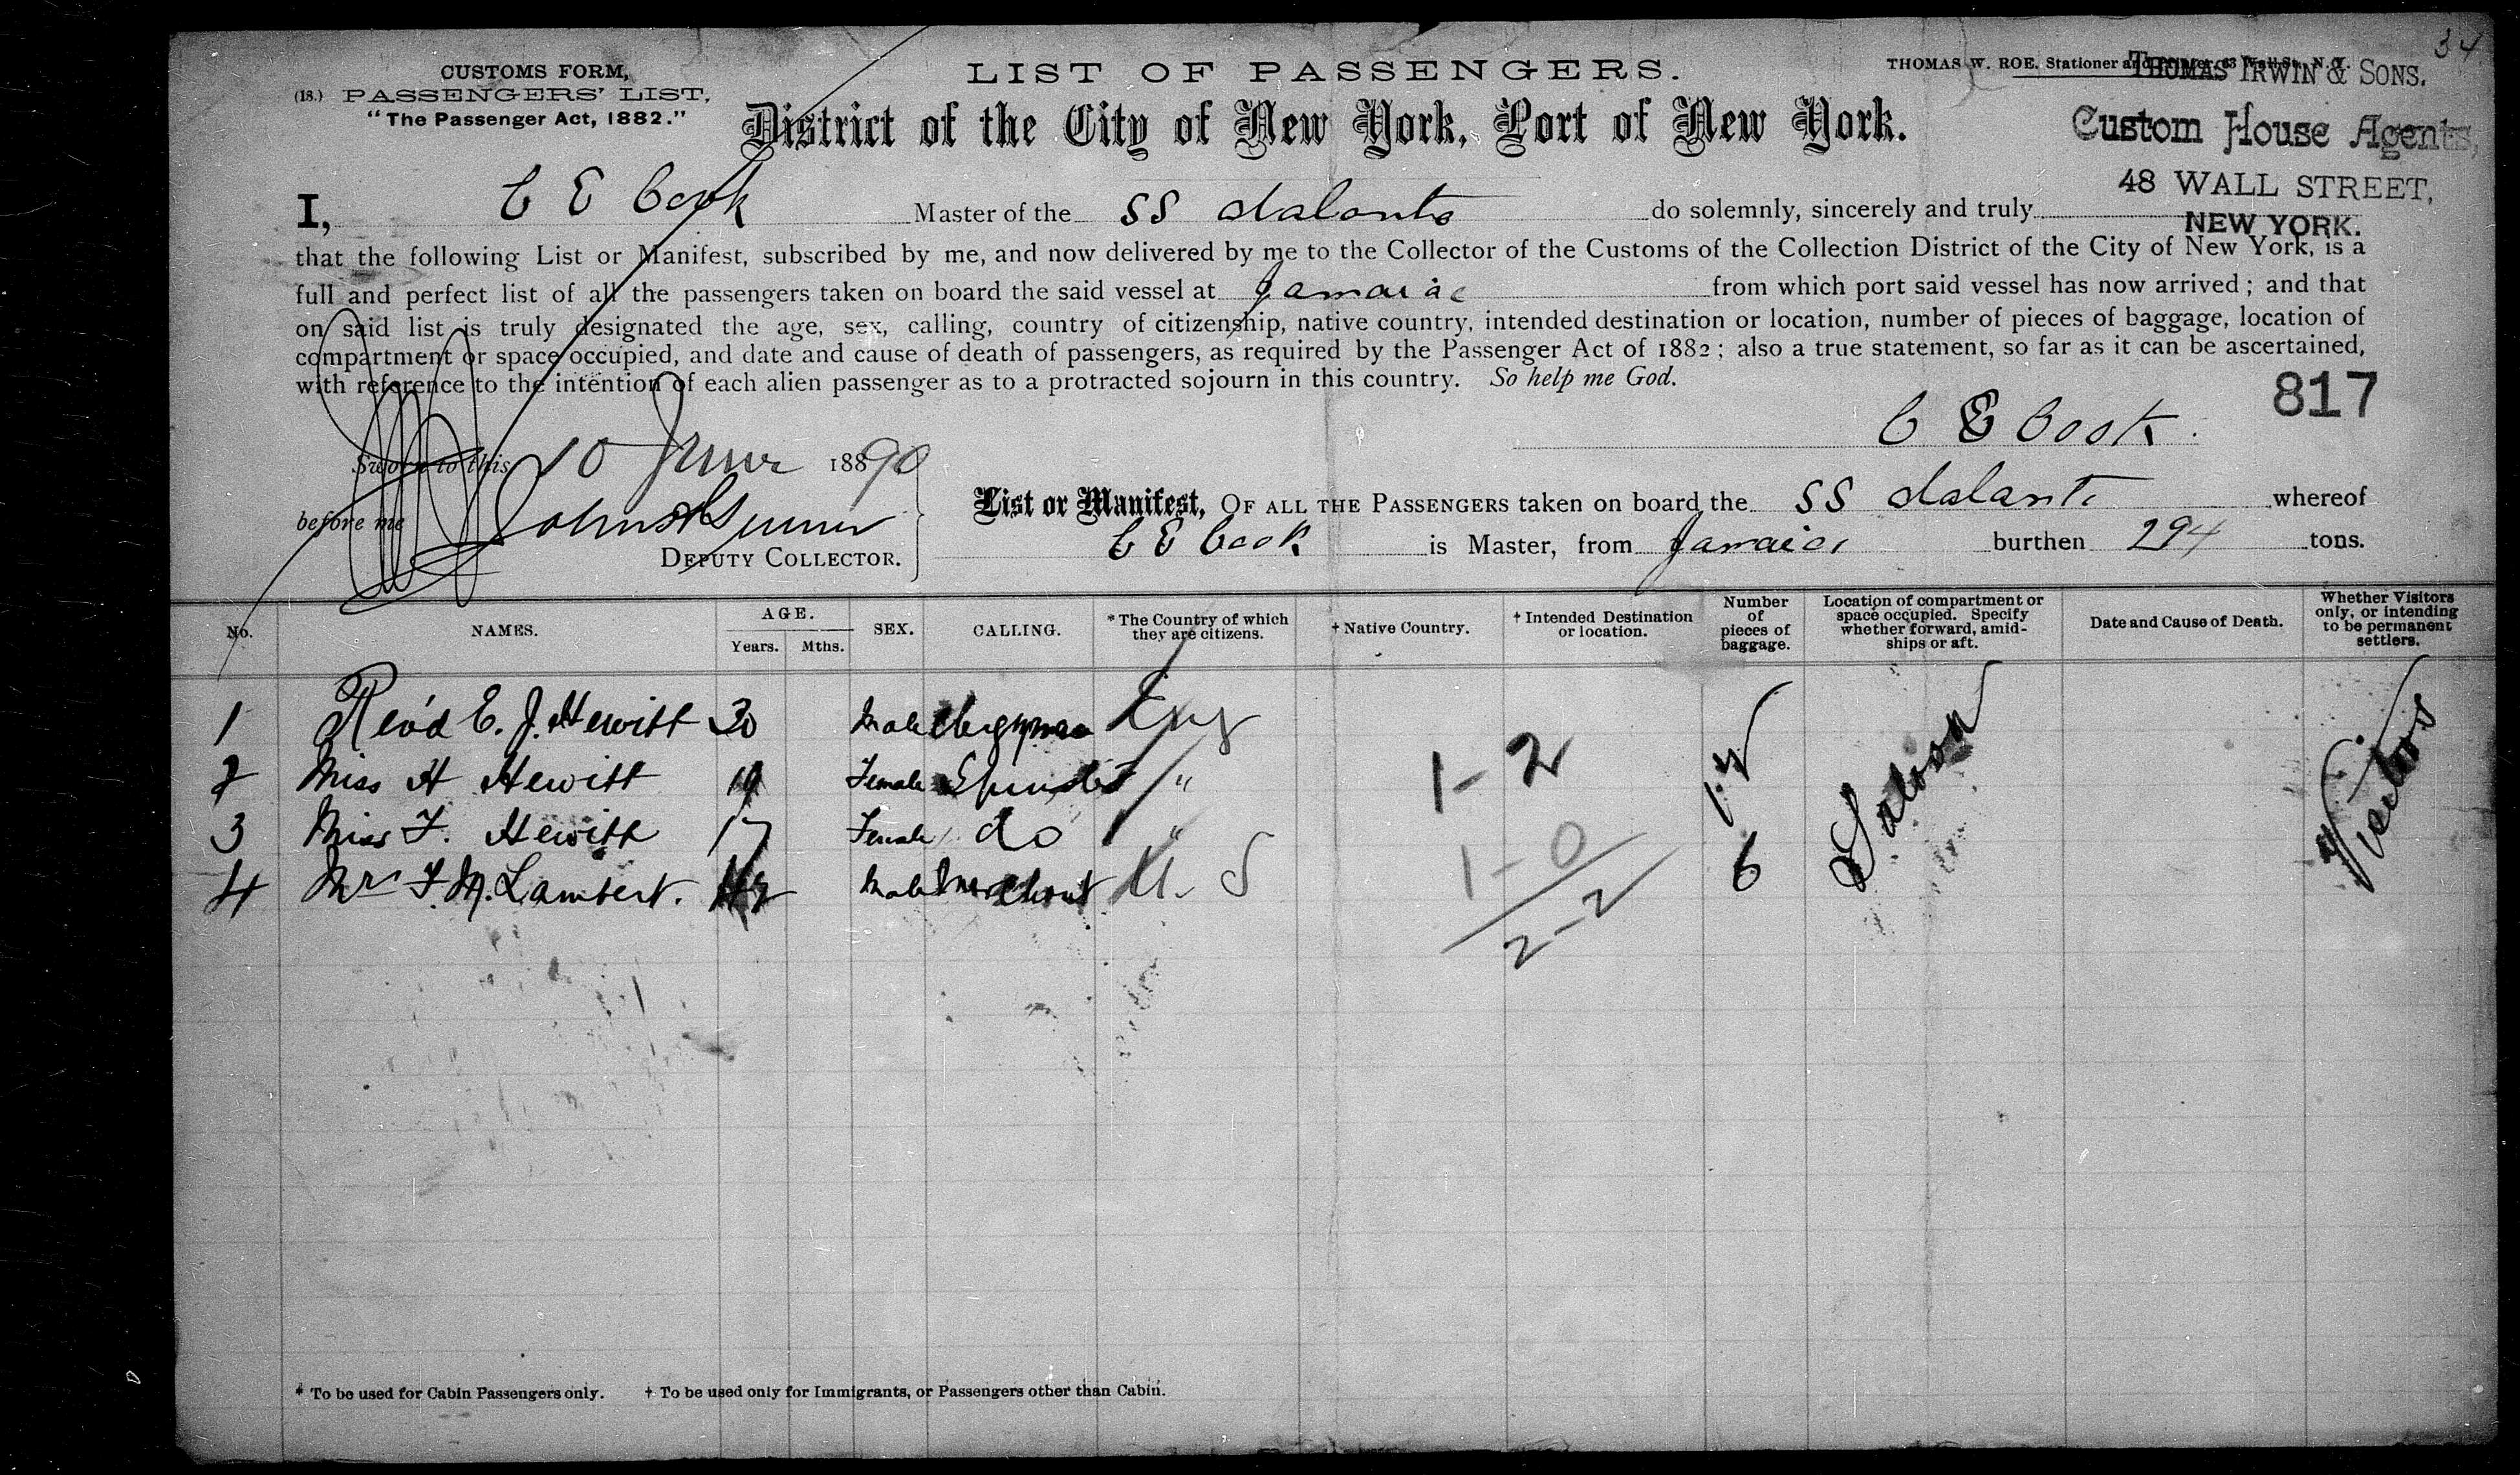 34
CUSTOMS FORM,
(18.) PASSENGERS' LIST,
"The Passenger Act, 1882."
LIST OF PASSENGERS.
THOMAS W. ROE, Stationer and Printer, 63 Wall St., N.Y.
District of the City of New York, Port of New York.
THOMAS IRWIN & SONS.
Custom House Agents,
48 WALL STREET,
NEW YORK.
I, C E Cook Master of the SS do solemnly, sincerely and truly
that the following List or Manifest, subscribed by me, and now delivered by me to the Collector of the Customs of the Collection District of the City of New York, is a
full and perfect list of all the passengers taken on board the said vessel at Jamaica from which port said vessel has now arrived; and that
on said list is truly designated the age, sex, calling, country of citizenship, native country, intended destination or location, number of pieces of baggage, location of
compartment or space occupied, and date and cause of death of passengers, as required by the Passenger Act of 1882; also a true statement, so far as it can be ascertained,
with reference to the intention of each alien passenger as to a protracted sojourn in this country. So help me God.
817
C E Cook
Sworn to this 10 June 1890
before me
DEPUTY COLLECTOR.
List or Manifest, OF ALL THE PASSENGERS taken on board the SS whereof
C E Cook is Master, from Jamaica burthen 294 tons.
No. NAMES. AGE. Years. Mths. SEX. CALLING. * The Country of which they are citizens. † Native Country. † Intended Destination or location. Number of pieces of baggage. Location of compartment or space occupied. Specify whether forward, amidships or aft. Date and Cause of Death. Whether Visitors only, or intending to be permanent settlers.
1 Rev'd E. J. Hewitt 30 Male Clergyman Eng
2 Miss H Hewitt 19 Female Spinster " 1-2 12 Saloon Visitors
3 Miss F. Hewitt 17 Female do " 1-0
4 Mr F. M. Lambert. Male Merchant U. S 6
2-2
* To be used for Cabin Passengers only. † To be used only for Immigrants, or Passengers other than Cabin.